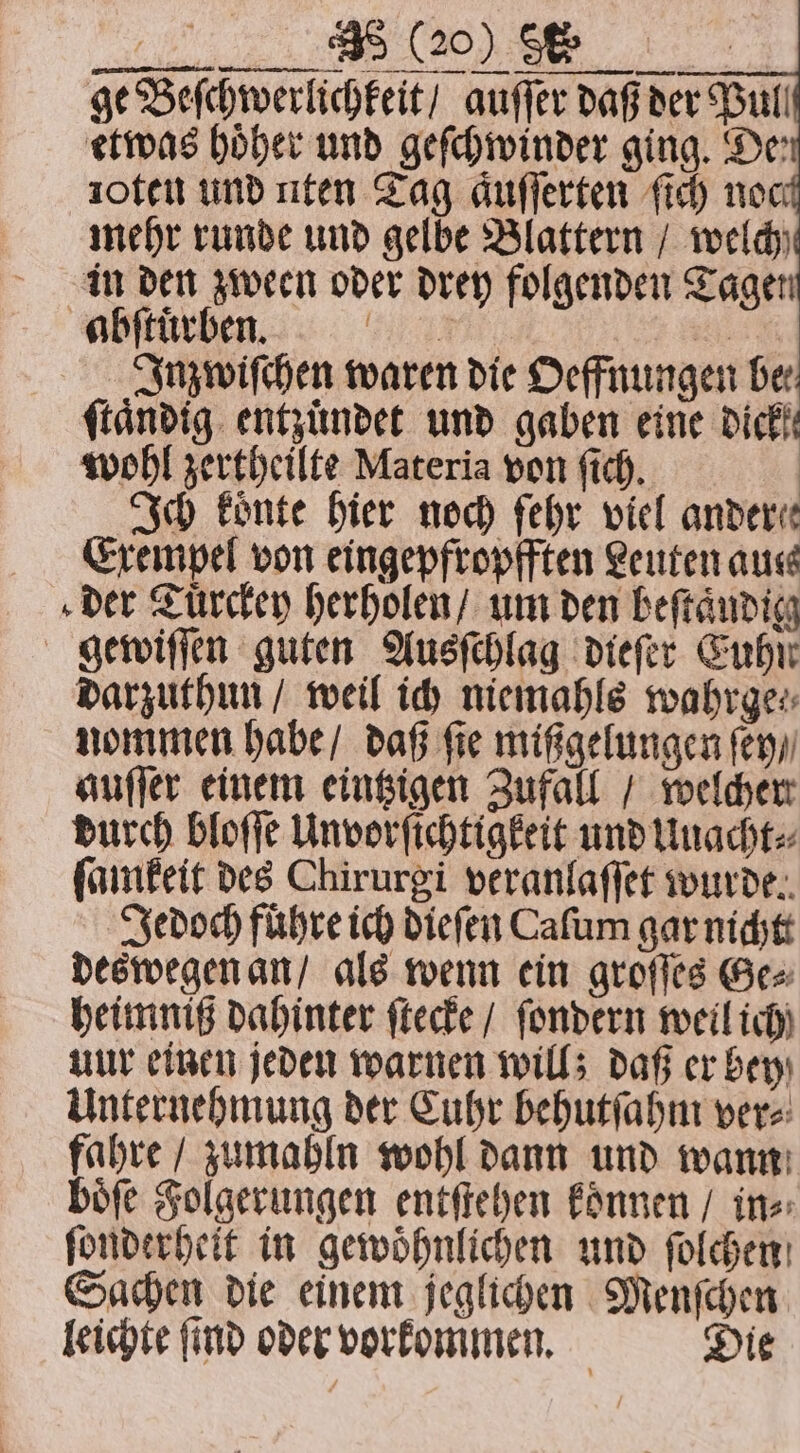 (20)
ge Beſchwerlichkeit/ auſſer daß der Pulſ
etwas hoͤher und geſchwinder ging. Den
10ten und 11ten Tag aͤuſſerten ſich noch
mehr runde und gelbe Blattern / welche
in den zween oder drey folgenden Tagen
abſtuͤrben.
Inzwiſchen waren die Oeffnungen be⸗
ſtaͤndig entzuͤndet und gaben eine dicke
wohl zertheilte Materia von ſich.
Ich koͤnte hier noch ſehr viel andere
Exempel von eingepfropfften Leuten aus
der Tuͤrckey herholen/ um den beſtaͤndig
gewiſſen guten Ausſchlag dieſer Cuhr
darzuthun / weil ich niemahls wahrge⸗
nommen habe/ daß ſie mißgelungen ſey/
auſſer einem eintzigen Zufall / welcher
durch bloſſe Unvorſichtigkeit und Unacht⸗
ſamkeit des Chirurgi veranlaſſet wurde.
Jedoch fuͤhre ich dieſen Caſum gar nicht
deswegen an/ als wenn ein groſſes Ge⸗
heimniß dahinter ſtecke / ſondern weil ich
nur einen jeden warnen will; daß er bey
Unternehmung der Cuhr behutſahm ver⸗
fahre / zumahln wohl dann und wann
boͤſe Folgerungen entſtehen koͤnnen / in⸗
ſonderheit in gewoͤhnlichen und ſolchen
Sachen die einem jeglichen Menſchen
leichte ſind oder vorkommen. Die